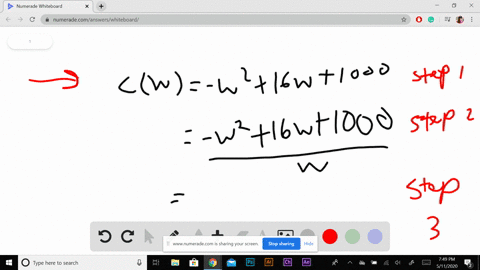 Numerade Whiteboard
numerade.com/answers/whiteboard/
C(W) = -w² + 16w + 1000 step 1
= -w² + 16w + 1000 step 2
w
= step
3
www.numerade.com is sharing your screen. Stop sharing Hide
Type here to search
7:49 PM
5/11/2020